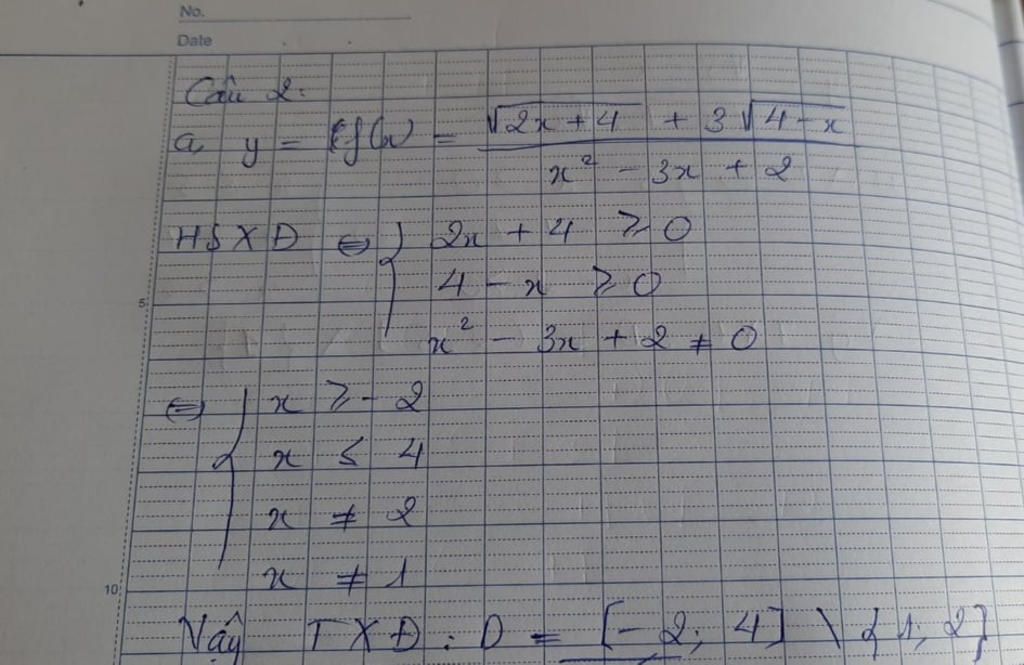 No.
Date
Câu 2:
a, y = f(x) = \frac{\sqrt{2x+4} + 3\sqrt{4-x}}{x^2 - 3x + 2}
HSXĐ ⇔ { 2x + 4 ≥ 0
4 - x ≥ 0
5
x^2 - 3x + 2 ≠ 0
⇔ { x ≥ -2
x ≤ 4
x ≠ 2
x ≠ 1
10
Vậy TXĐ: D = [-2; 4] \ {1; 2}